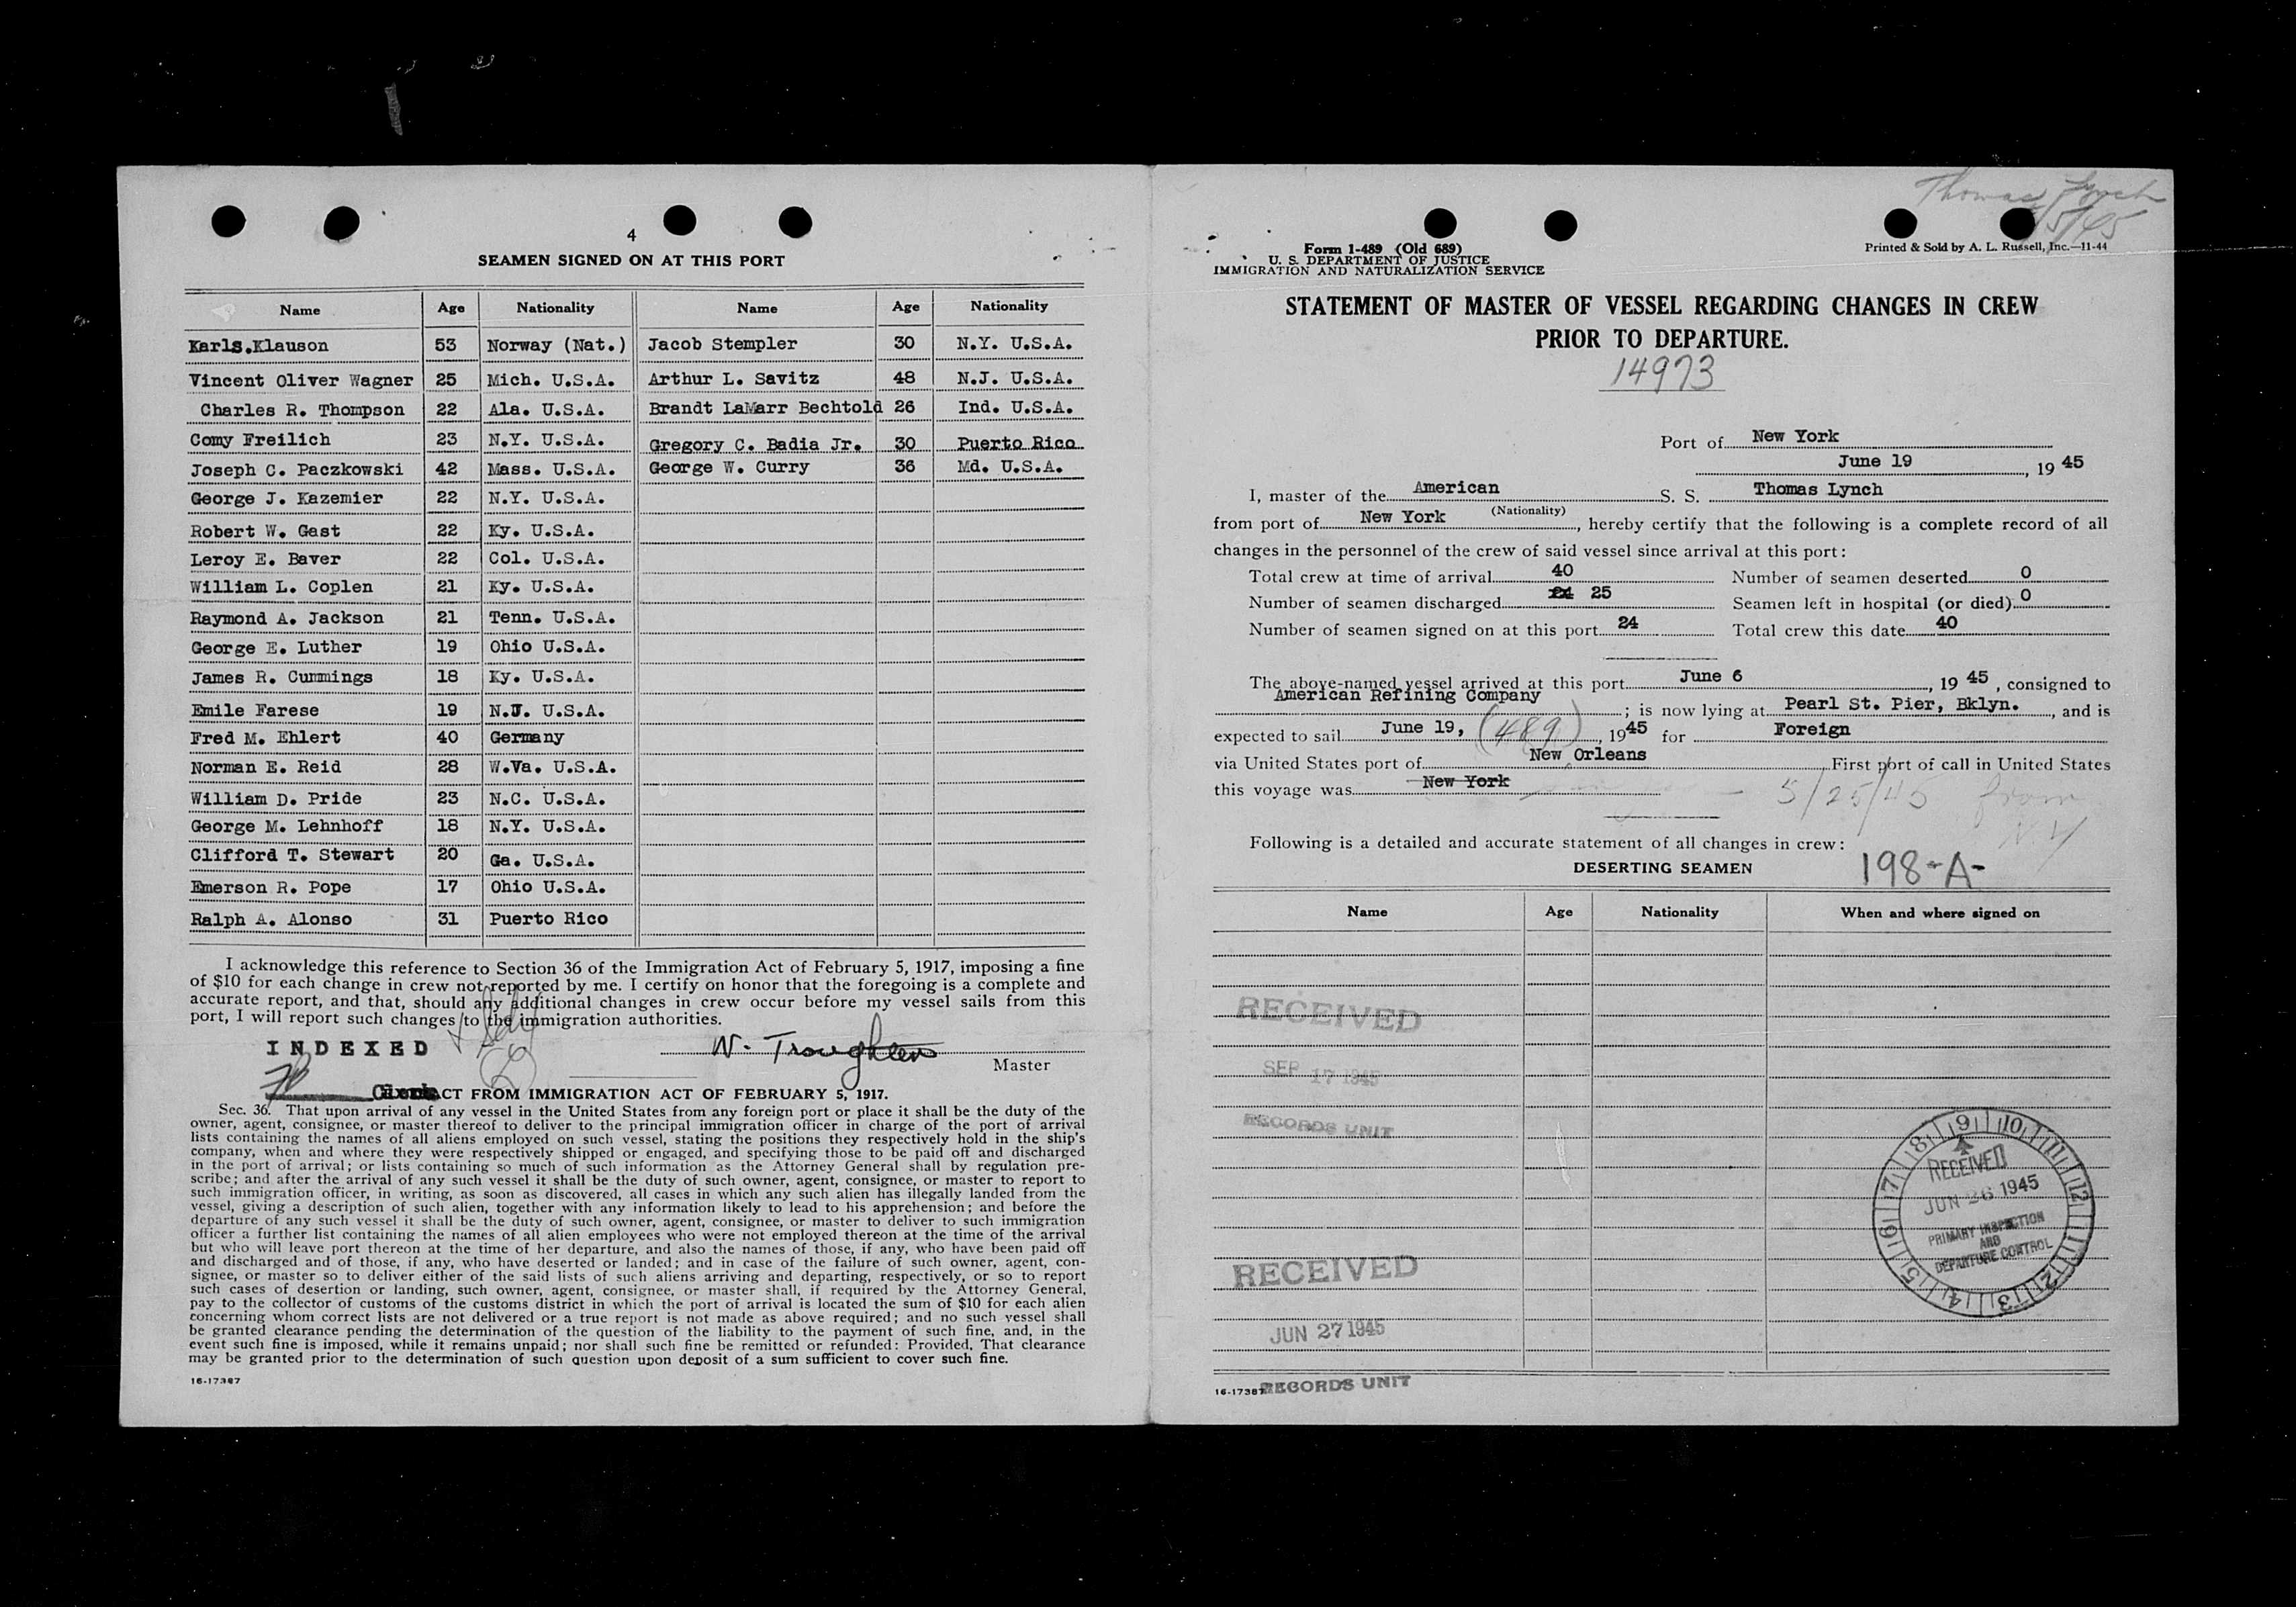 4
SEAMEN SIGNED ON AT THIS PORT
Name Age Nationality Name Age Nationality
Karls.Klauson 53 Norway (Nat.) Jacob Stempler 30 N.Y. U.S.A.
Vincent Oliver Wagner 25 Mich. U.S.A. Arthur L. Savitz 48 N.J. U.S.A.
Charles R. Thompson 22 Ala. U.S.A. Brandt LaMarr Bechtold 26 Ind. U.S.A.
Comy Freilich 23 N.Y. U.S.A. Gregory C. Badia Jr. 30 Puerto Rico
Joseph C. Paczkowski 42 Mass. U.S.A. George W. Curry 36 Md. U.S.A.
George J. Kazemier 22 N.Y. U.S.A.
Robert W. Gast 22 Ky. U.S.A.
Leroy E. Baver 22 Col. U.S.A.
William L. Coplen 21 Ky. U.S.A.
Raymond A. Jackson 21 Tenn. U.S.A.
George E. Luther 19 Ohio U.S.A.
James R. Cummings 18 Ky. U.S.A.
Emile Farese 19 N.J. U.S.A.
Fred M. Ehlert 40 Germany
Norman E. Reid 28 W.Va. U.S.A.
William D. Pride 23 N.C. U.S.A.
George M. Lehnhoff 18 N.Y. U.S.A.
Clifford T. Stewart 20 Ga. U.S.A.
Emerson R. Pope 17 Ohio U.S.A.
Ralph A. Alonso 31 Puerto Rico
I acknowledge this reference to Section 36 of the Immigration Act of February 5, 1917, imposing a fine
of $10 for each change in crew not reported by me. I certify on honor that the foregoing is a complete and
accurate report, and that, should any additional changes in crew occur before my vessel sails from this
port, I will report such changes to the immigration authorities.
INDEXED
W. Troughten
Master
Clerk ACT FROM IMMIGRATION ACT OF FEBRUARY 5, 1917.
Sec. 36. That upon arrival of any vessel in the United States from any foreign port or place it shall be the duty of the
owner, agent, consignee, or master thereof to deliver to the principal immigration officer in charge of the port of arrival
lists containing the names of all aliens employed on such vessel, stating the positions they respectively hold in the ship's
company, when and where they were respectively shipped or engaged, and specifying those to be paid off and discharged
in the port of arrival; or lists containing so much of such information as the Attorney General shall by regulation pre-
scribe; and after the arrival of any such vessel it shall be the duty of such owner, agent, consignee, or master to report to
such immigration officer, in writing, as soon as discovered, all cases in which any such alien has illegally landed from the
vessel, giving a description of such alien, together with any information likely to lead to his apprehension; and before the
departure of any such vessel it shall be the duty of such owner, agent, consignee, or master to deliver to such immigration
officer a further list containing the names of all alien employees who were not employed thereon at the time of the arrival
but who will leave port thereon at the time of her departure, and also the names of those, if any, who have been paid off
and discharged and of those, if any, who have deserted or landed; and in case of the failure of such owner, agent, con-
signee, or master so to deliver either of the said lists of such aliens arriving and departing, respectively, or so to report
such cases of desertion or landing, such owner, agent, consignee, or master shall, if required by the Attorney General,
pay to the collector of customs of the customs district in which the port of arrival is located the sum of $10 for each alien
concerning whom correct lists are not delivered or a true report is not made as above required; and no such vessel shall
be granted clearance pending the determination of the question of the liability to the payment of such fine, and, in the
event such fine is imposed, while it remains unpaid; nor shall such fine be remitted or refunded: Provided, That clearance
may be granted prior to the determination of such question upon deposit of a sum sufficient to cover such fine.
16-17387
Thomas Lynch
5/45
Form 1-489 (Old 689)
U. S. DEPARTMENT OF JUSTICE
IMMIGRATION AND NATURALIZATION SERVICE
Printed & Sold by A. L. Russell, Inc.—11-44
STATEMENT OF MASTER OF VESSEL REGARDING CHANGES IN CREW
PRIOR TO DEPARTURE.
14973
Port of New York
June 19, 19 45
I, master of the American S. S. Thomas Lynch
(Nationality)
from port of New York, hereby certify that the following is a complete record of all
changes in the personnel of the crew of said vessel since arrival at this port:
Total crew at time of arrival 40 Number of seamen deserted 0
Number of seamen discharged 24 25 Seamen left in hospital (or died) 0
Number of seamen signed on at this port 24 Total crew this date 40
The above-named vessel arrived at this port June 6, 19 45, consigned to
American Refining Company; is now lying at Pearl St. Pier, Bklyn., and is
expected to sail June 19, (489), 1945 for Foreign
via United States port of New Orleans First port of call in United States
this voyage was New York 5/25/45 from
N Y
Following is a detailed and accurate statement of all changes in crew:
DESERTING SEAMEN 198-A-
Name Age Nationality When and where signed on
RECEIVED
SEP 17 1945
RECORDS UNIT
9 10 11 12 1 2 3 4 5 6 7 8
RECEIVED
JUN 26 1945
PRIMARY INSPECTION
AND
DEPARTURE CONTROL
RECEIVED
JUN 27 1945
RECORDS UNIT
16-17387